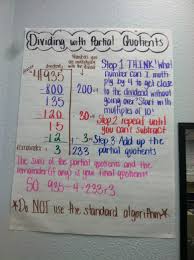 Dividing with Partial Quotients
dividend
4)935
-800 200
135
-120
15
-12 3
3 233
remainder
Step 1 THINK! What
number can I multi-
ply by 4 to get close
to the dividend without
going over? Start with
multiples of 10.
Step 2 repeat until
you can't subtract
Step 3 Add up the
partial quotients
The sum of the partial quotients and the
remainder (if any) is your final quotient!
SO 935÷4=233r3
*Do NOT use the standard algorithm*